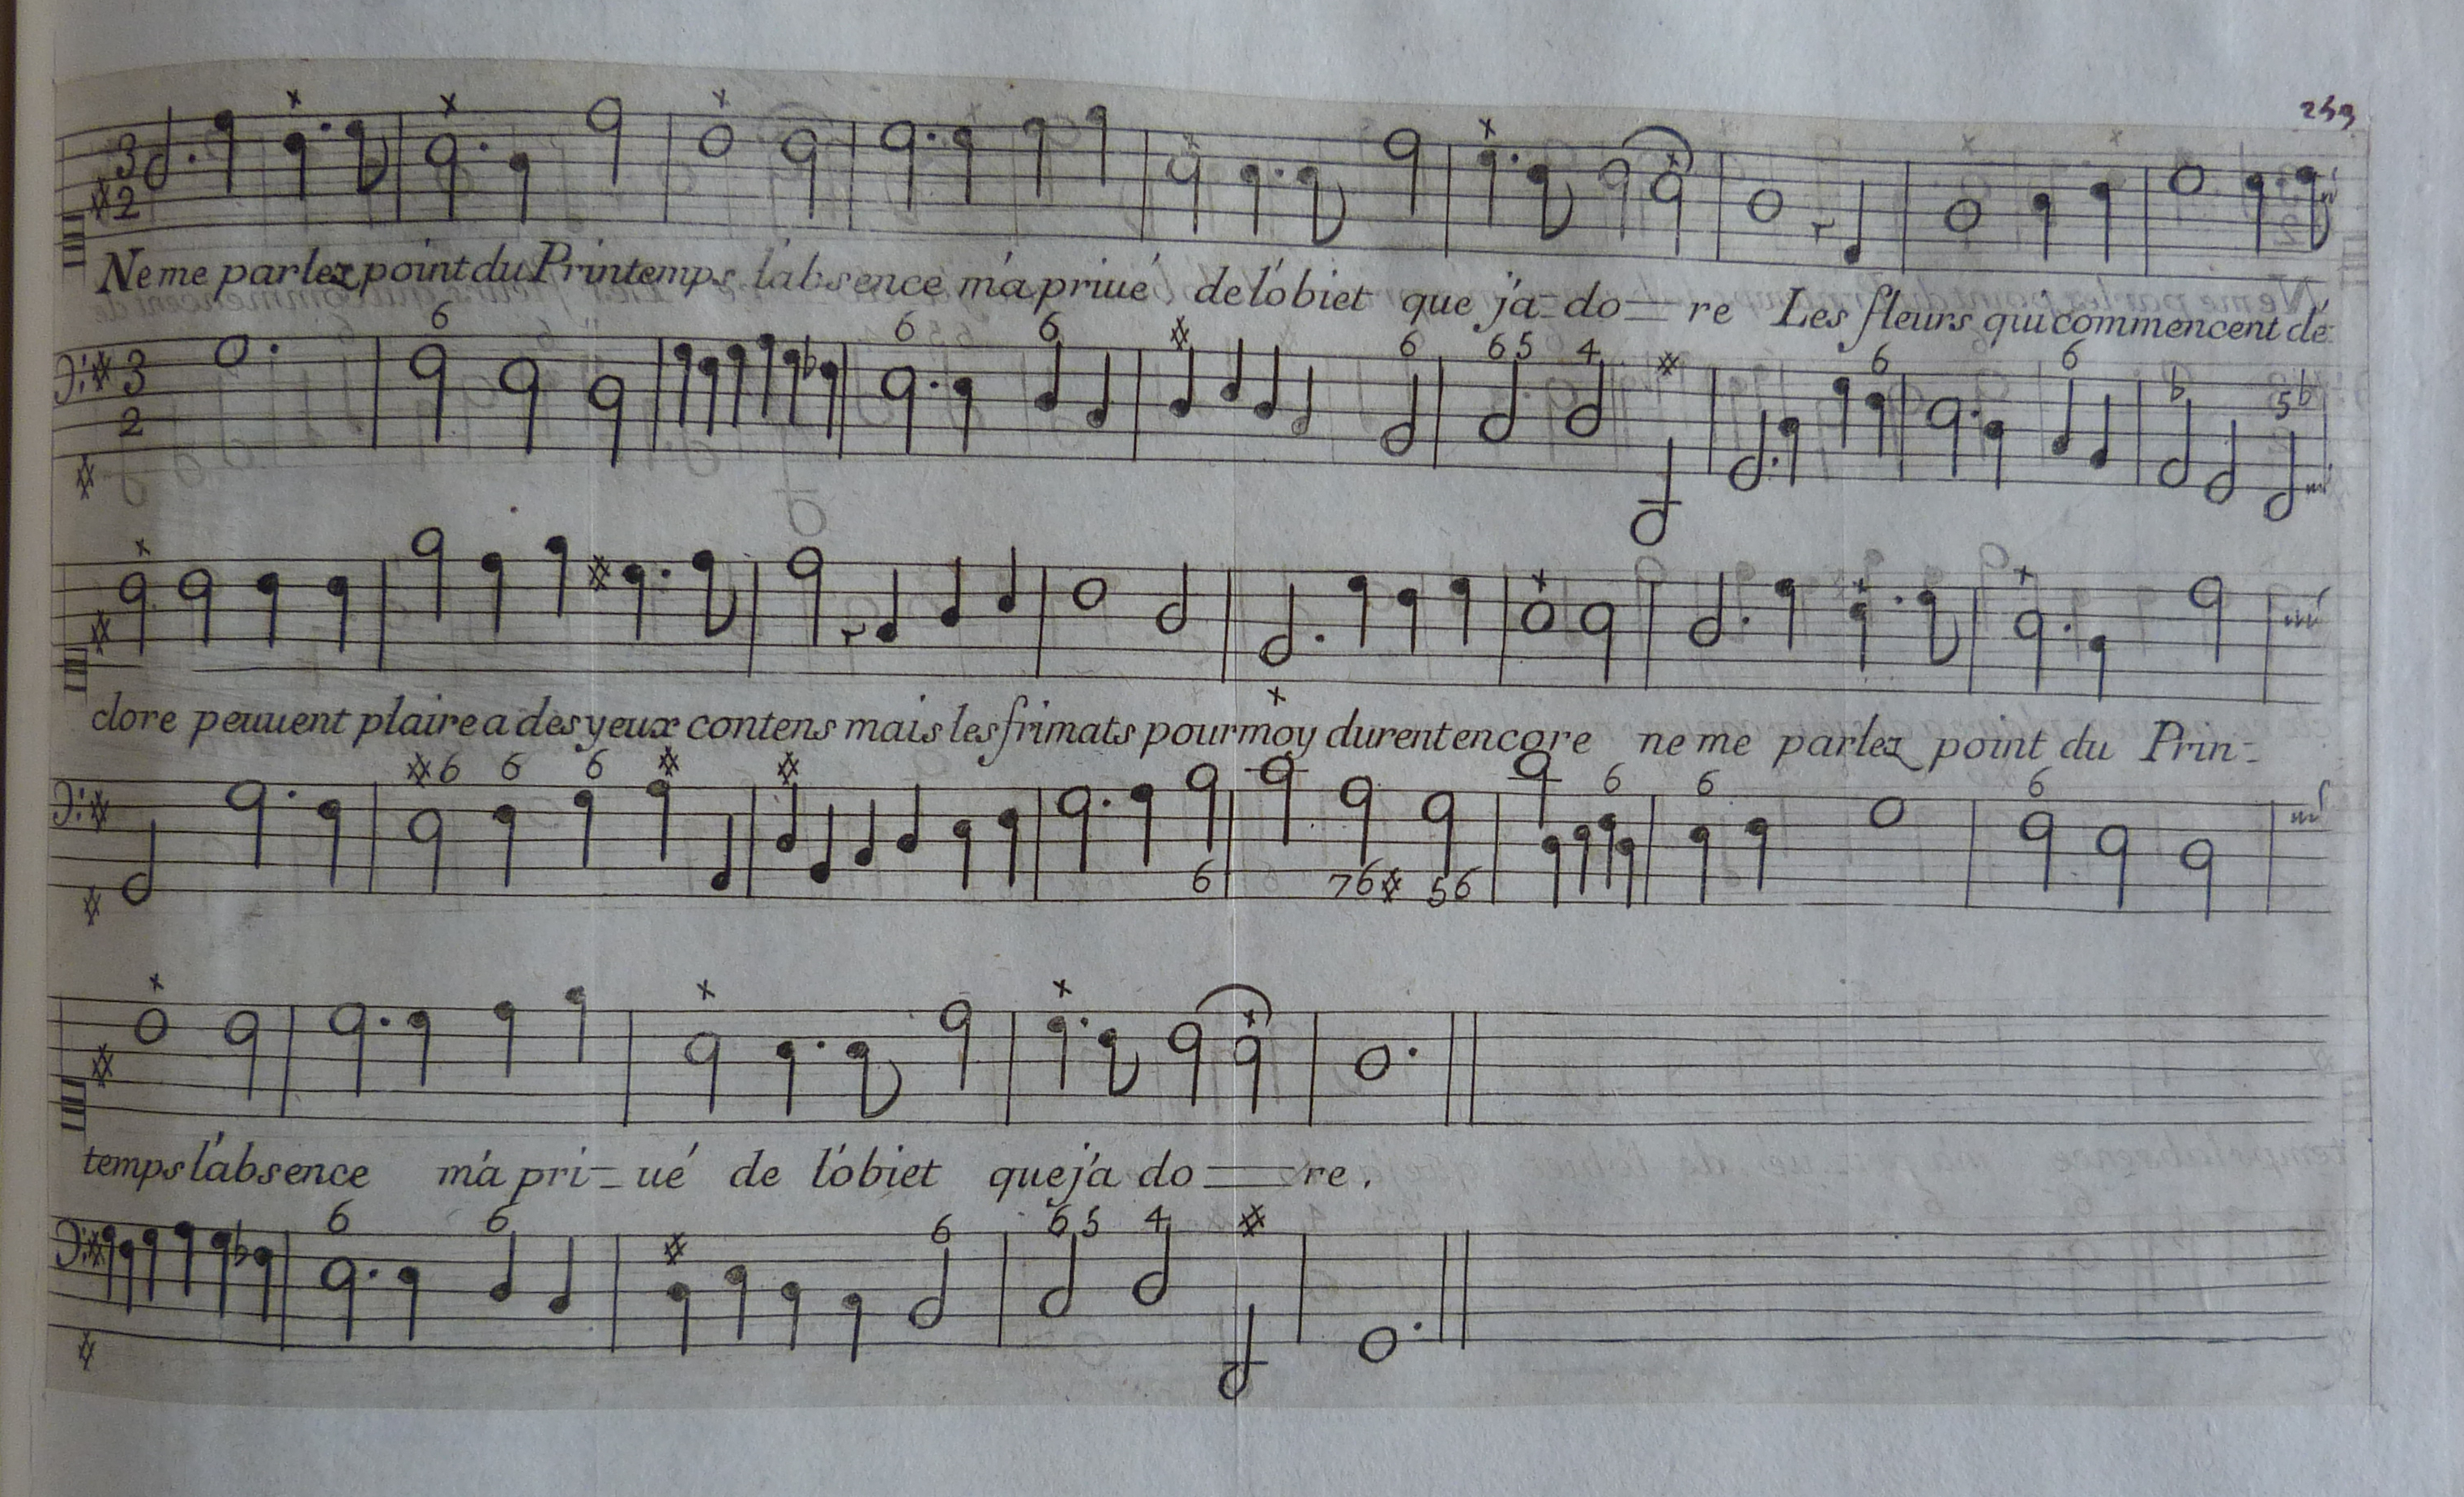 259
3 2
Ne me parlez point du Printemps l'absence m'a priué de l'obiet que j'a=do=re Les fleurs qui commencent dé=
6 6 6 6 6 5 4 6 6 5♭
3 2
clore peuuent plaire a des yeux contens mais les frimats pour moy durent encore ne me parlez point du Prin=
6 6 6 6 6 6
6 76 56
temps l'absence m'a pri=ué de l'obiet que j'a do=re.
6 6 6 6 5 4